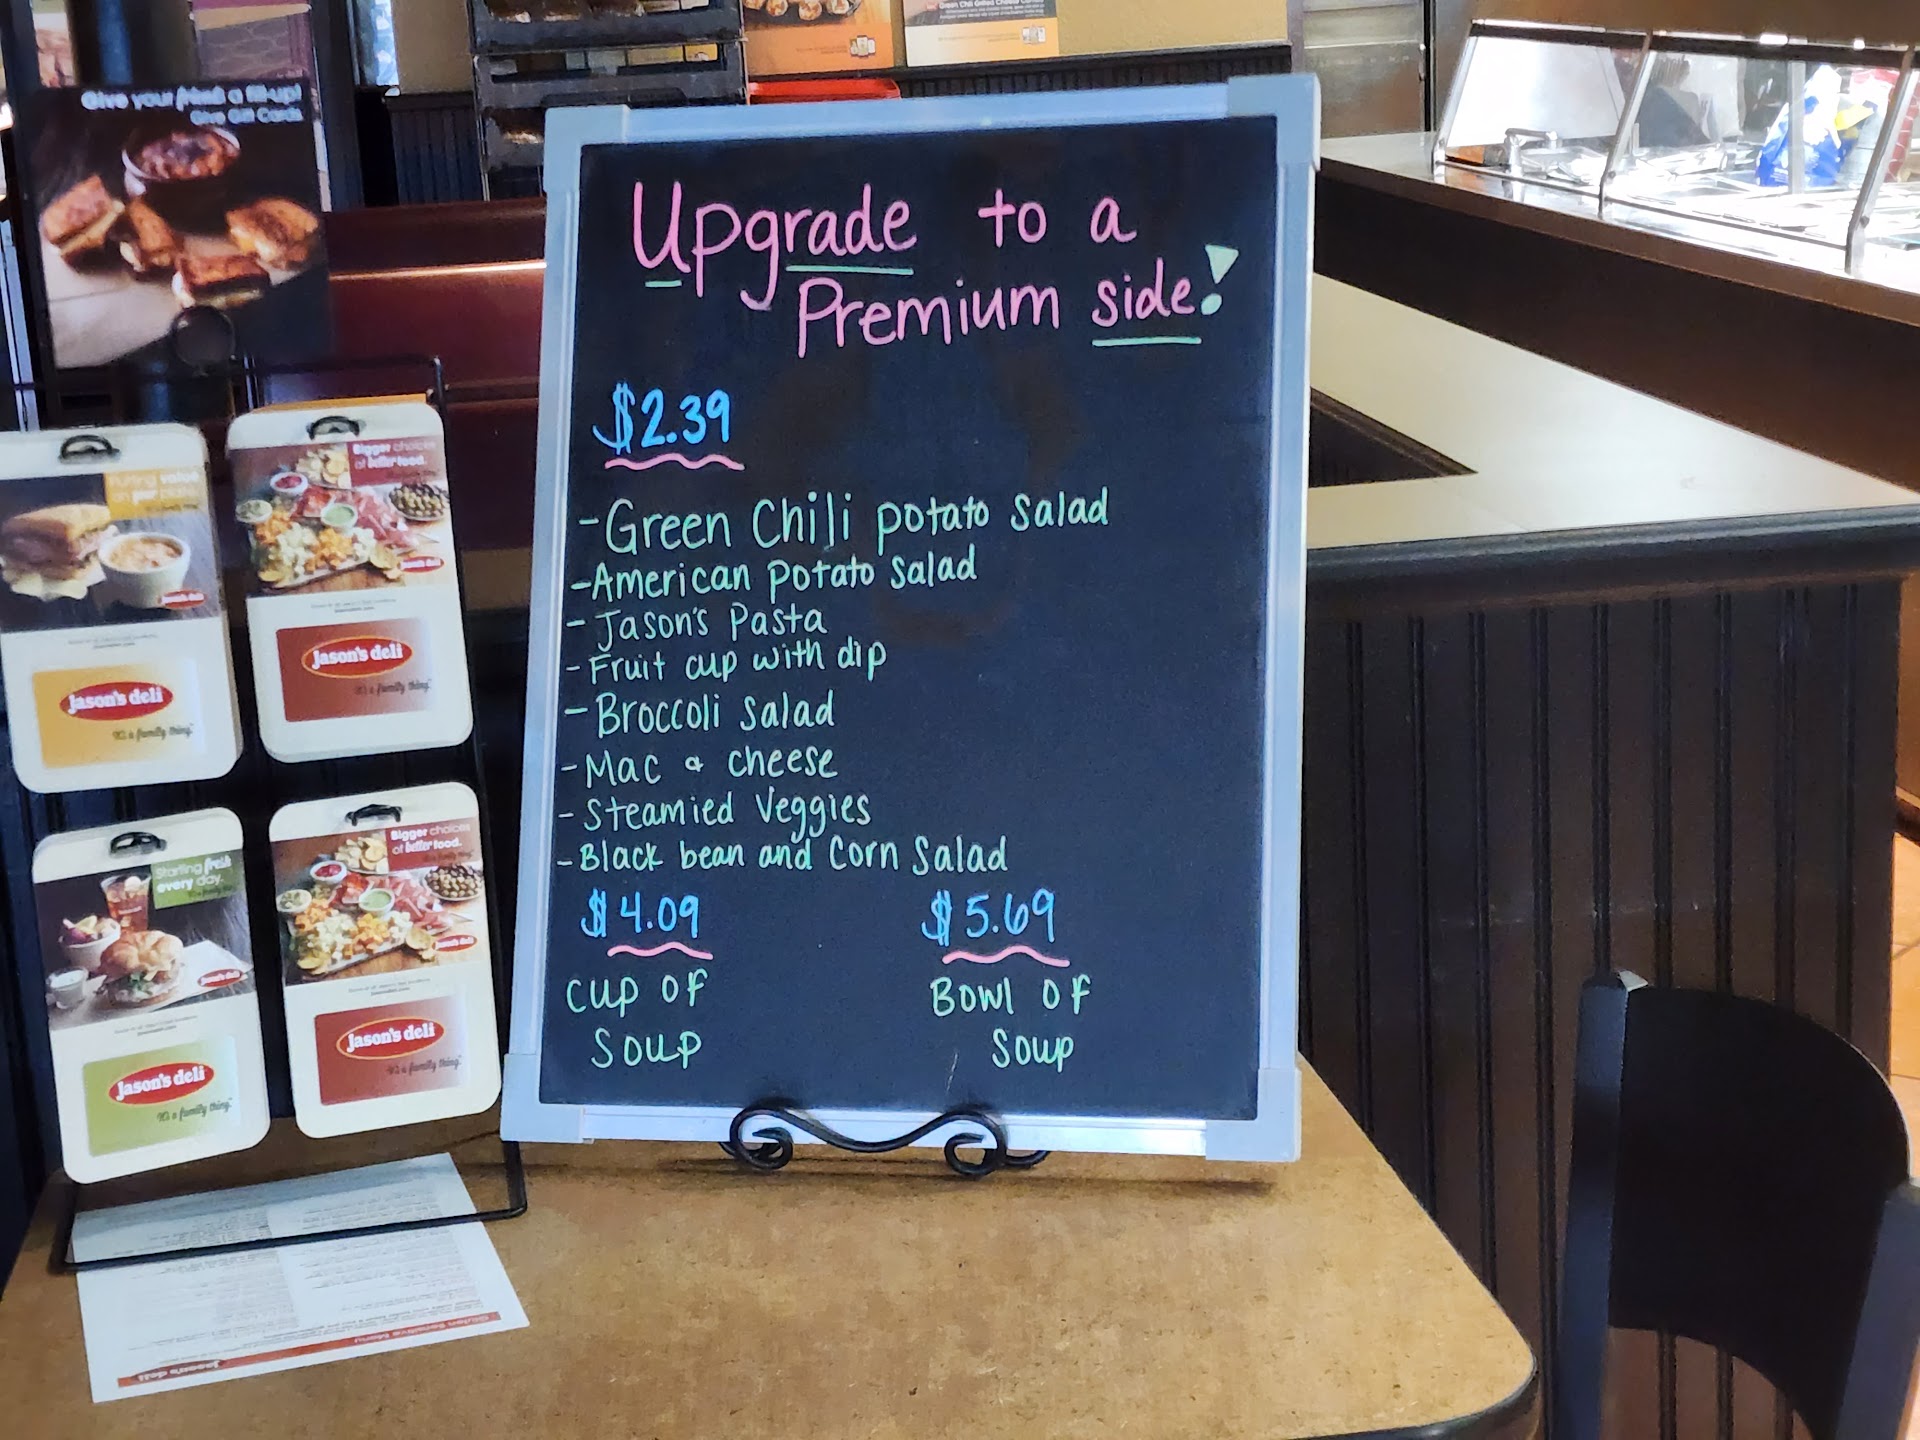 Give your friend a fill-up!
Give Gift Cards
Upgrade to a
Premium side!
$2.39
- Green Chili potato salad
- American potato salad
- Jason's Pasta
- Fruit cup with dip
- Broccoli salad
- Mac & cheese
- Steamied Veggies
- Black bean and Corn Salad
$4.09
Cup of
Soup
$5.69
Bowl of
Soup
Putting value
on your plate.
Jason's deli
Jason's deli
It's a family thing.
Bigger choices
of better food.
Jason's deli
Jason's deli
It's a family thing.
Starting fresh
every day.
Jason's deli
Jason's deli
It's a family thing.
Bigger choices
of better food.
Jason's deli
Jason's deli
It's a family thing.
Gluten Sensitive Menu
Jason's deli